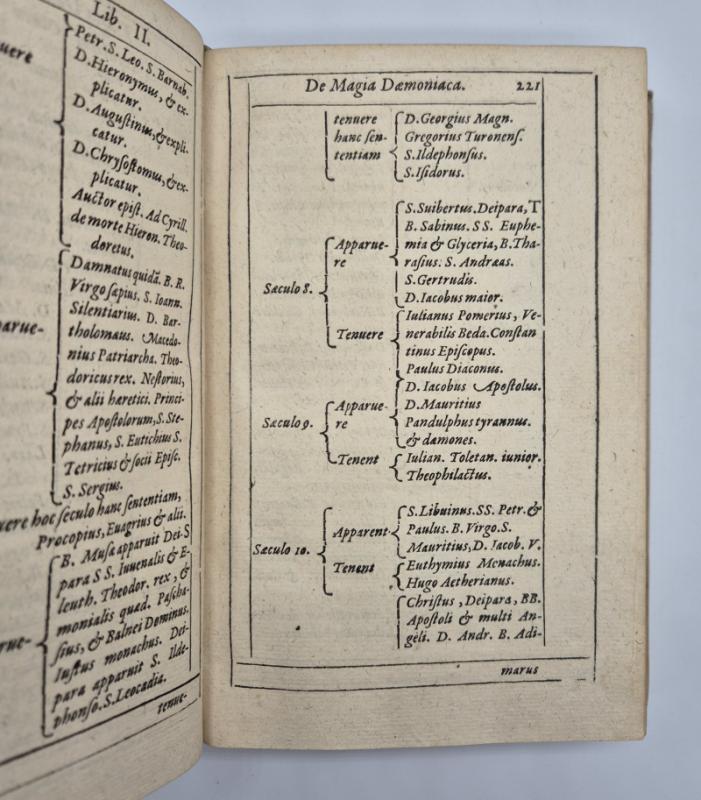 Lib. II.
Petr. S. Leo. S. Barnab.
D. Hieronymus, & ex-
plicatur.
D. Augustinus, & expli-
catur.
D. Chrysostomus, & ex-
plicatur.
Auctor epist. Ad Cyrill.
de morte Hieron. Theo-
doretus.
Damnatus quidã. B. R.
Virgo sæpius. S. Ioann.
Silentiarius. D. Bar-
tholomæus. Macedo-
nius Patriarcha. Theo-
doricus rex. Nestorius,
& alii hæretici. Princi-
pes Apostolorum, S. Ste-
phanus, S. Eutichius S.
Tetricius & socii Episc.
S. Sergius.
uere hoc seculo hanc sententiam,
Procopius, Euagrius & alii.
B. Musæ apparuit Dei-
para SS. Iuuenalis & E-
leuth. Theodor. rex, &
monialis quæd. Pascha-
sius, & Balnei Dominus.
Iustus monachus. Dei-
para apparuit S. Ilde-
phonso. S. Leocadia.
tenue-
De Magia Dæmoniaca. 221
tenuere
hanc sen-
tentiam
D. Georgius Magn.
Gregorius Turonens.
S. Ildephonsus.
S. Isidorus.
Sæculo 8.
Apparue-
re
S. Suibertus. Deipara, T
B. Sabinus. SS. Euphe-
mia & Glyceria, B. Tha-
rasius. S. Andræas.
S. Gertrudis.
D. Iacobus maior.
Tenuere
Iulianus Pomerius, Ve-
nerabilis Beda. Constan
tinus Episcopus.
Paulus Diaconus.
Sæculo 9.
Apparue-
re
D. Iacobus Apostolus.
D. Mauritius
Pandulphus tyrannus.
& dæmones.
Tenent
Iulian. Toletan. iunior.
Theophilactus.
Sæculo 10.
Apparent
S. Libuinus. SS. Petr. &
Paulus. B. Virgo. S.
Mauritius, D. Iacob. V.
Tenent
Euthymius Monachus.
Hugo Aetherianus.
Christus, Deipara, BB.
Apostoli & multi An-
geli. D. Andr. B. Adi-
marus